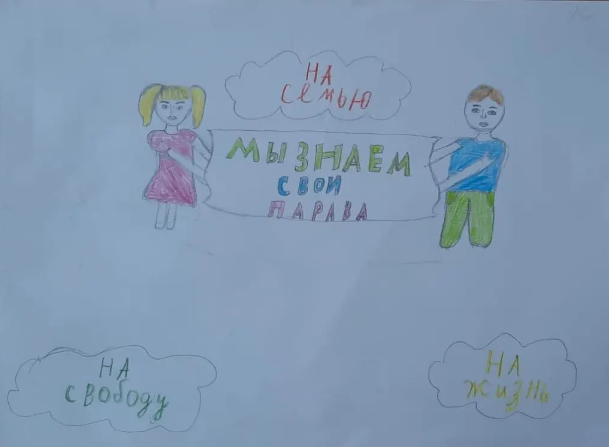 НА
СЕМЬЮ
МЫ ЗНАЕМ
СВОИ
ПАРАВА
НА
СВОбОДУ
НА
ЖИЗНЬ